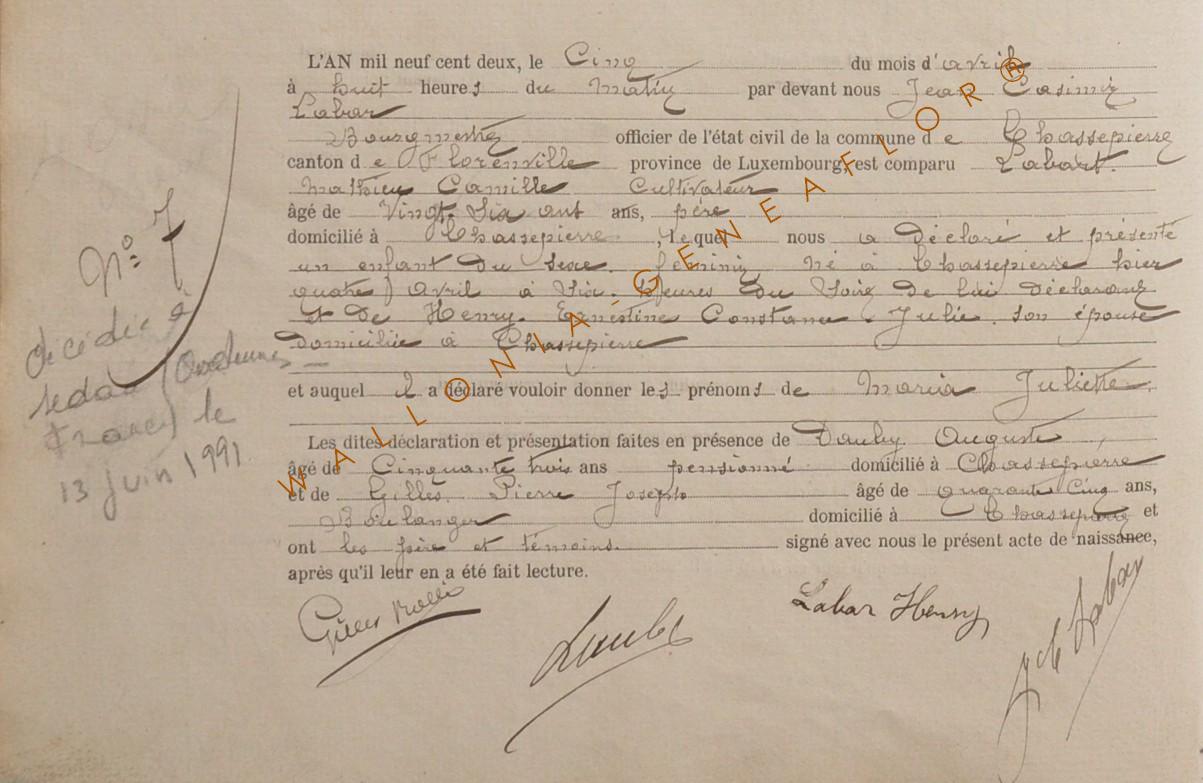 L'AN mil neuf cent deux, le Cinq du mois d'avril
à huit heures du Matin par devant nous Jean Casimir
Labar
Bourgmestre officier de l'état civil de la commune de Chassepierre
canton de Florenville province de Luxembourg, est comparu Labart.
Mathieu Camille Cultivateur
âgé de Vingt Six ans ans, père
domicilié à Chassepierre, lequel nous a déclaré et présenté
un enfant du sexe féminin, né à Chassepierre hier
quatre avril à Six heures du Soir de lui déclarant
et de Henry Ernestine Constance Julie son épouse
domiciliée à Chassepierre
et auquel il a déclaré vouloir donner les prénoms de Maria Juliette.
Les dites déclaration et présentation faites en présence de Dauby Auguste,
âgé de Cinquante trois ans pensionné domicilié à Chassepierre
et de Gilles Pierre Joseph âgé de quarante Cinq ans,
Boulanger domicilié à Chassepierre et
ont les père et témoins. signé avec nous le présent acte de naissance,
après qu'il leur en a été fait lecture.
N° 7
décédée à
Sedan (Ardennes
France) le
13 juin 1991
Gilles
Labar Henry
J C Labar
WALLONIA-GENEAFLOR®